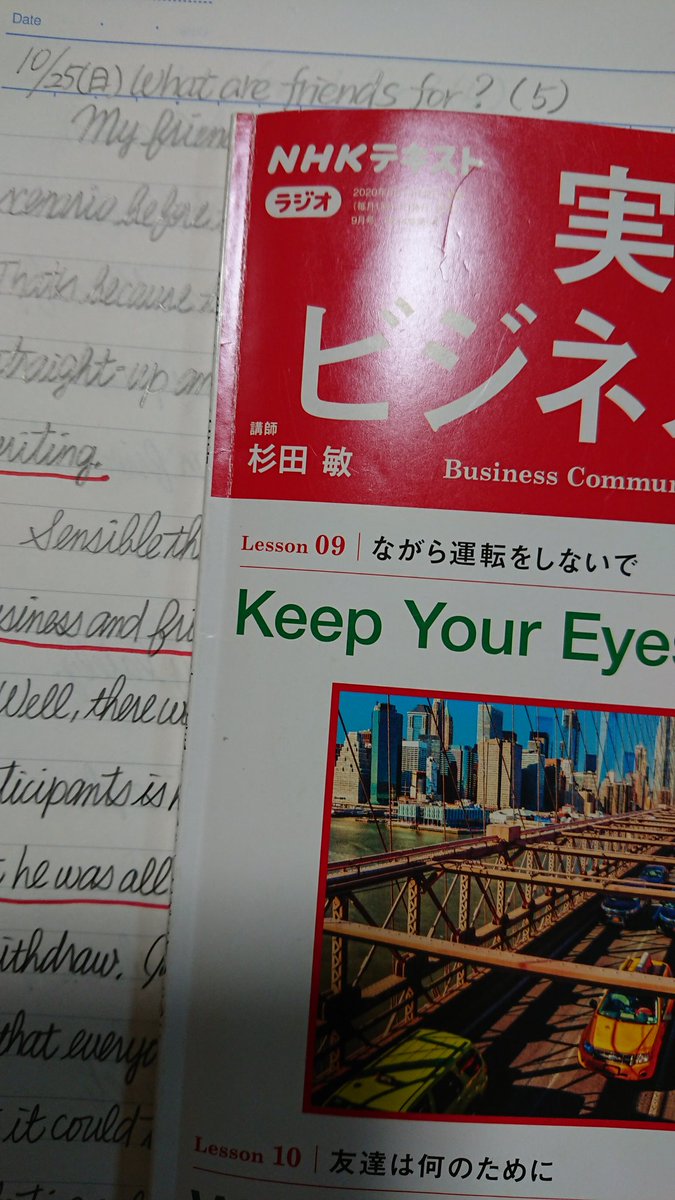 Date
10/25(日) What are friends for? (5)
My frien
scenario before
That's because
straight-up an
writing.
Sensible th
siness and fri
Well, there w
ticipants is
he was all
ithdraw.
that everyo
it could
NHKテキスト
ラジオ
2020年
9月号
実
ビジネ
講師
杉田 敏
Business Commu
Lesson 09 ながら運転をしないで
Keep Your Eyes
Lesson 10 友達は何のために